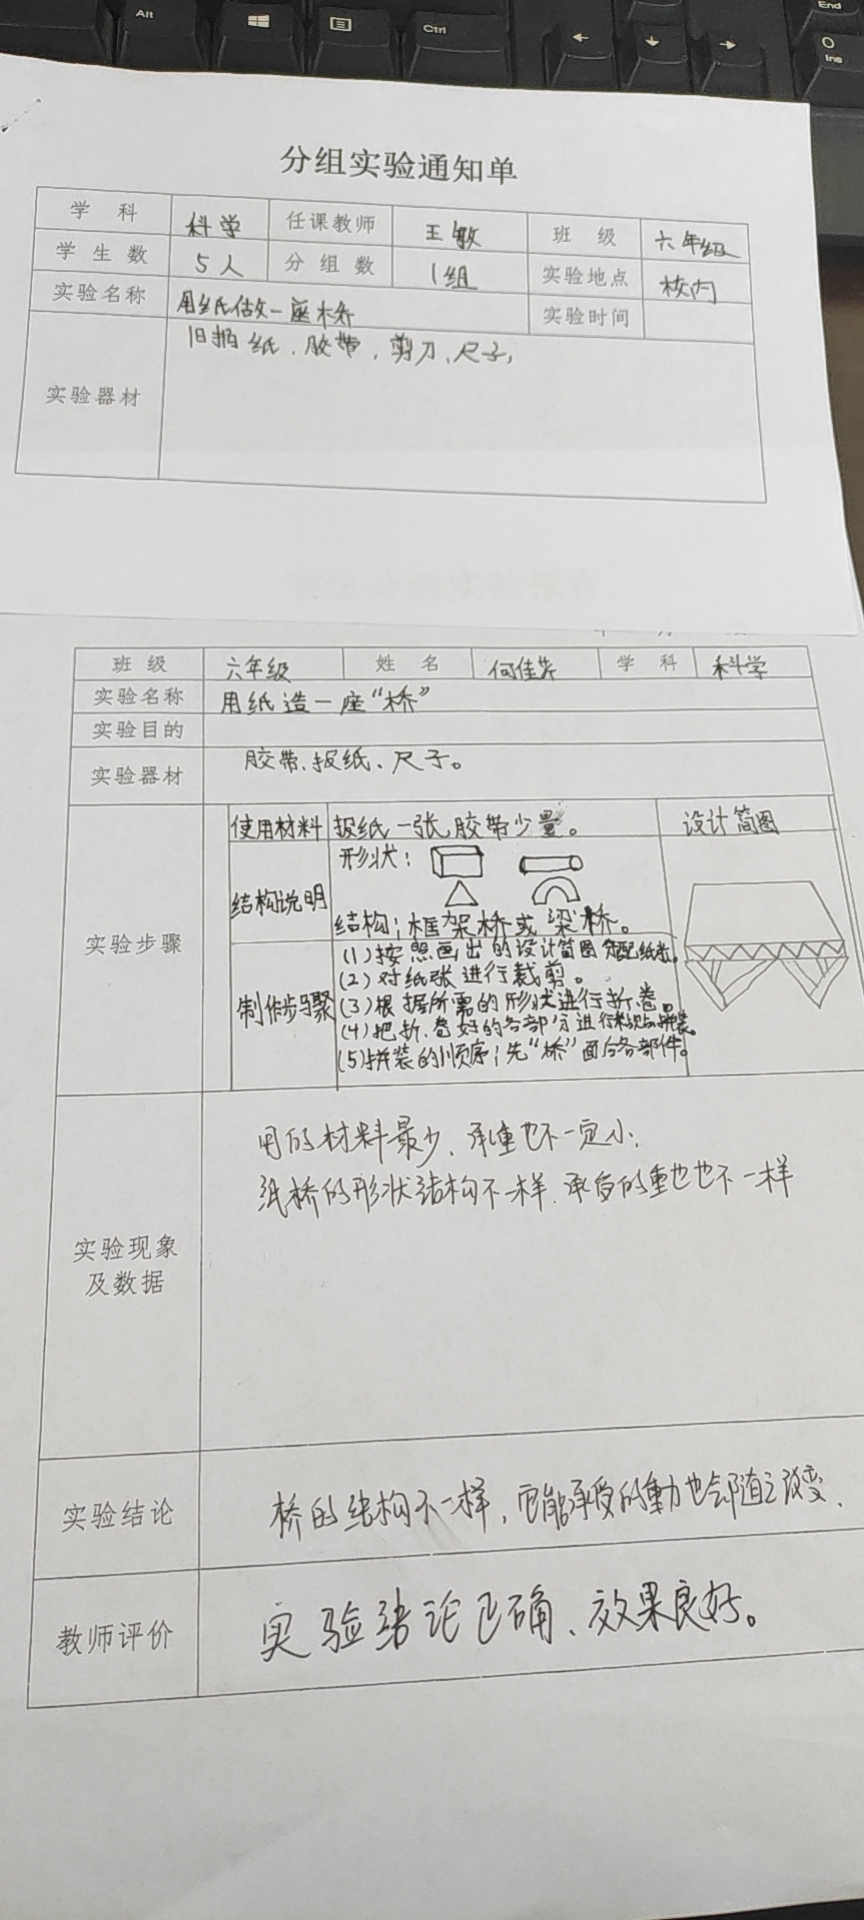 Alt
Ctrl
End
Ins
分组实验通知单
学 科 科学 任课教师 王敏 班 级 六年级
学生数 5人 分组数 1组 实验地点 校内
实验名称 用纸做一座桥 实验时间
实验器材 旧报纸、胶带、剪刀、尺子,
班 级 六年级 姓 名 何佳 学 科 科学
实验名称 用纸造一座“桥”
实验目的
实验器材 胶带、报纸、尺子。
实验步骤
使用材料 报纸一张,胶带少量。 设计简图
结构说明 形状:
结构:框架桥或梁桥。
制作步骤
(1)按照画出的设计简图分配纸张。
(2)对纸张进行裁剪。
(3)根据所需的形状进行折、卷。
(4)把折、卷好的各部分进行拼装。
(5)拼装的顺序;先“桥”面后各部件。
实验现象及数据
用的材料最少、承重也不一定小,
纸桥的形状结构不一样,承受的重也也不一样
实验结论 桥的结构不一样,它能承受的動也却随之改变、
教师评价 实验结论正确、效果良好。